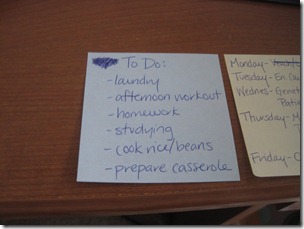 To Do:
- laundry
- afternoon workout
- homework
- studying
- cook rice/beans
- prepare casserole
Monday-
Tuesday- En
Wednes- Genet
Thursday- M
Friday- C